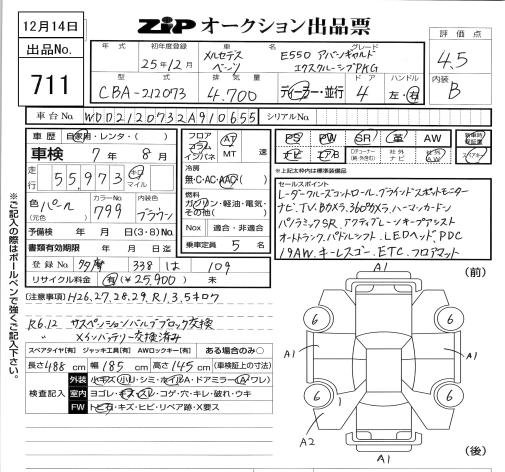 12月14日
ZIP オークション出品票
出品No.
711
年式
初年度登録
25年12月
車名
メルセデス
ベンツ
グレード
E550 アバンギャルド
エクスクルーシブPKG
評価点
4.5
内装
B
型式
CBA-212073
排気量
4.700
ディーラー・並行
ドア
4
ハンドル
左・右
車台No.
WDD2120732A910655
シリアルNo.
車歴
自家用・レンタ・( )
車検
7年 8月
走行
55,973
キロ
マイル
色
パール
(元色)
カラーNo.
799
内装色
ブラウン
予備検 年 月 日(3・8)No.
書類有効期限 年 月 日迄
登録No.
338 は 109
リサイクル料金 (有)(¥25,900) 未
フロア
コラム
インパネ
AT
MT
速
冷房
無・C・AC・AAC
燃料
ガソリン・軽油・電気・
その他( )
Nox 適合・非適合
乗車定員 5 名
PS PW SR 革 AW
ナビ エアB
社外
ナビ
社外
AW
スペアキー
※上記太枠内は標準装備品
セールスポイント
レーダークルーズコントロール、ブラインドスポットモニター
ナビ、TV、Bカメラ、360°カメラ、ハーマンカードン
パノラミックSR、アクティブレーンキープアシスト
オートトランク、パドルシフト、LEDヘッド、PDC
19AW、キーレスゴー、ETC、フロアマット
※ご記入の際はボールペンで強くご記入下さい。
(注意事項) H26.27.28.29.R1.3.5キロク
R6.12 サスペンションバルブブロック交換
〃 メインバッテリー交換済み
スペアタイヤ[有] ジャッキ工具[有] AWロックキー[有] ある場合のみ○
長さ 488 cm 幅 185 cm 高さ 145 cm (車検証上の寸法)
検査記入
外装 小キズ・小U・シミ・ホイルA・ドアミラー(A・ワレ)
室内 ヨゴレ・キズ・スレ・コゲ・穴・キレ・破れ・ウキ
FW トビ石・キズ・ヒビ・リペア跡・X要ス
(前)
A1
6 6
A1 A1
6 6
A2
A1
(後)